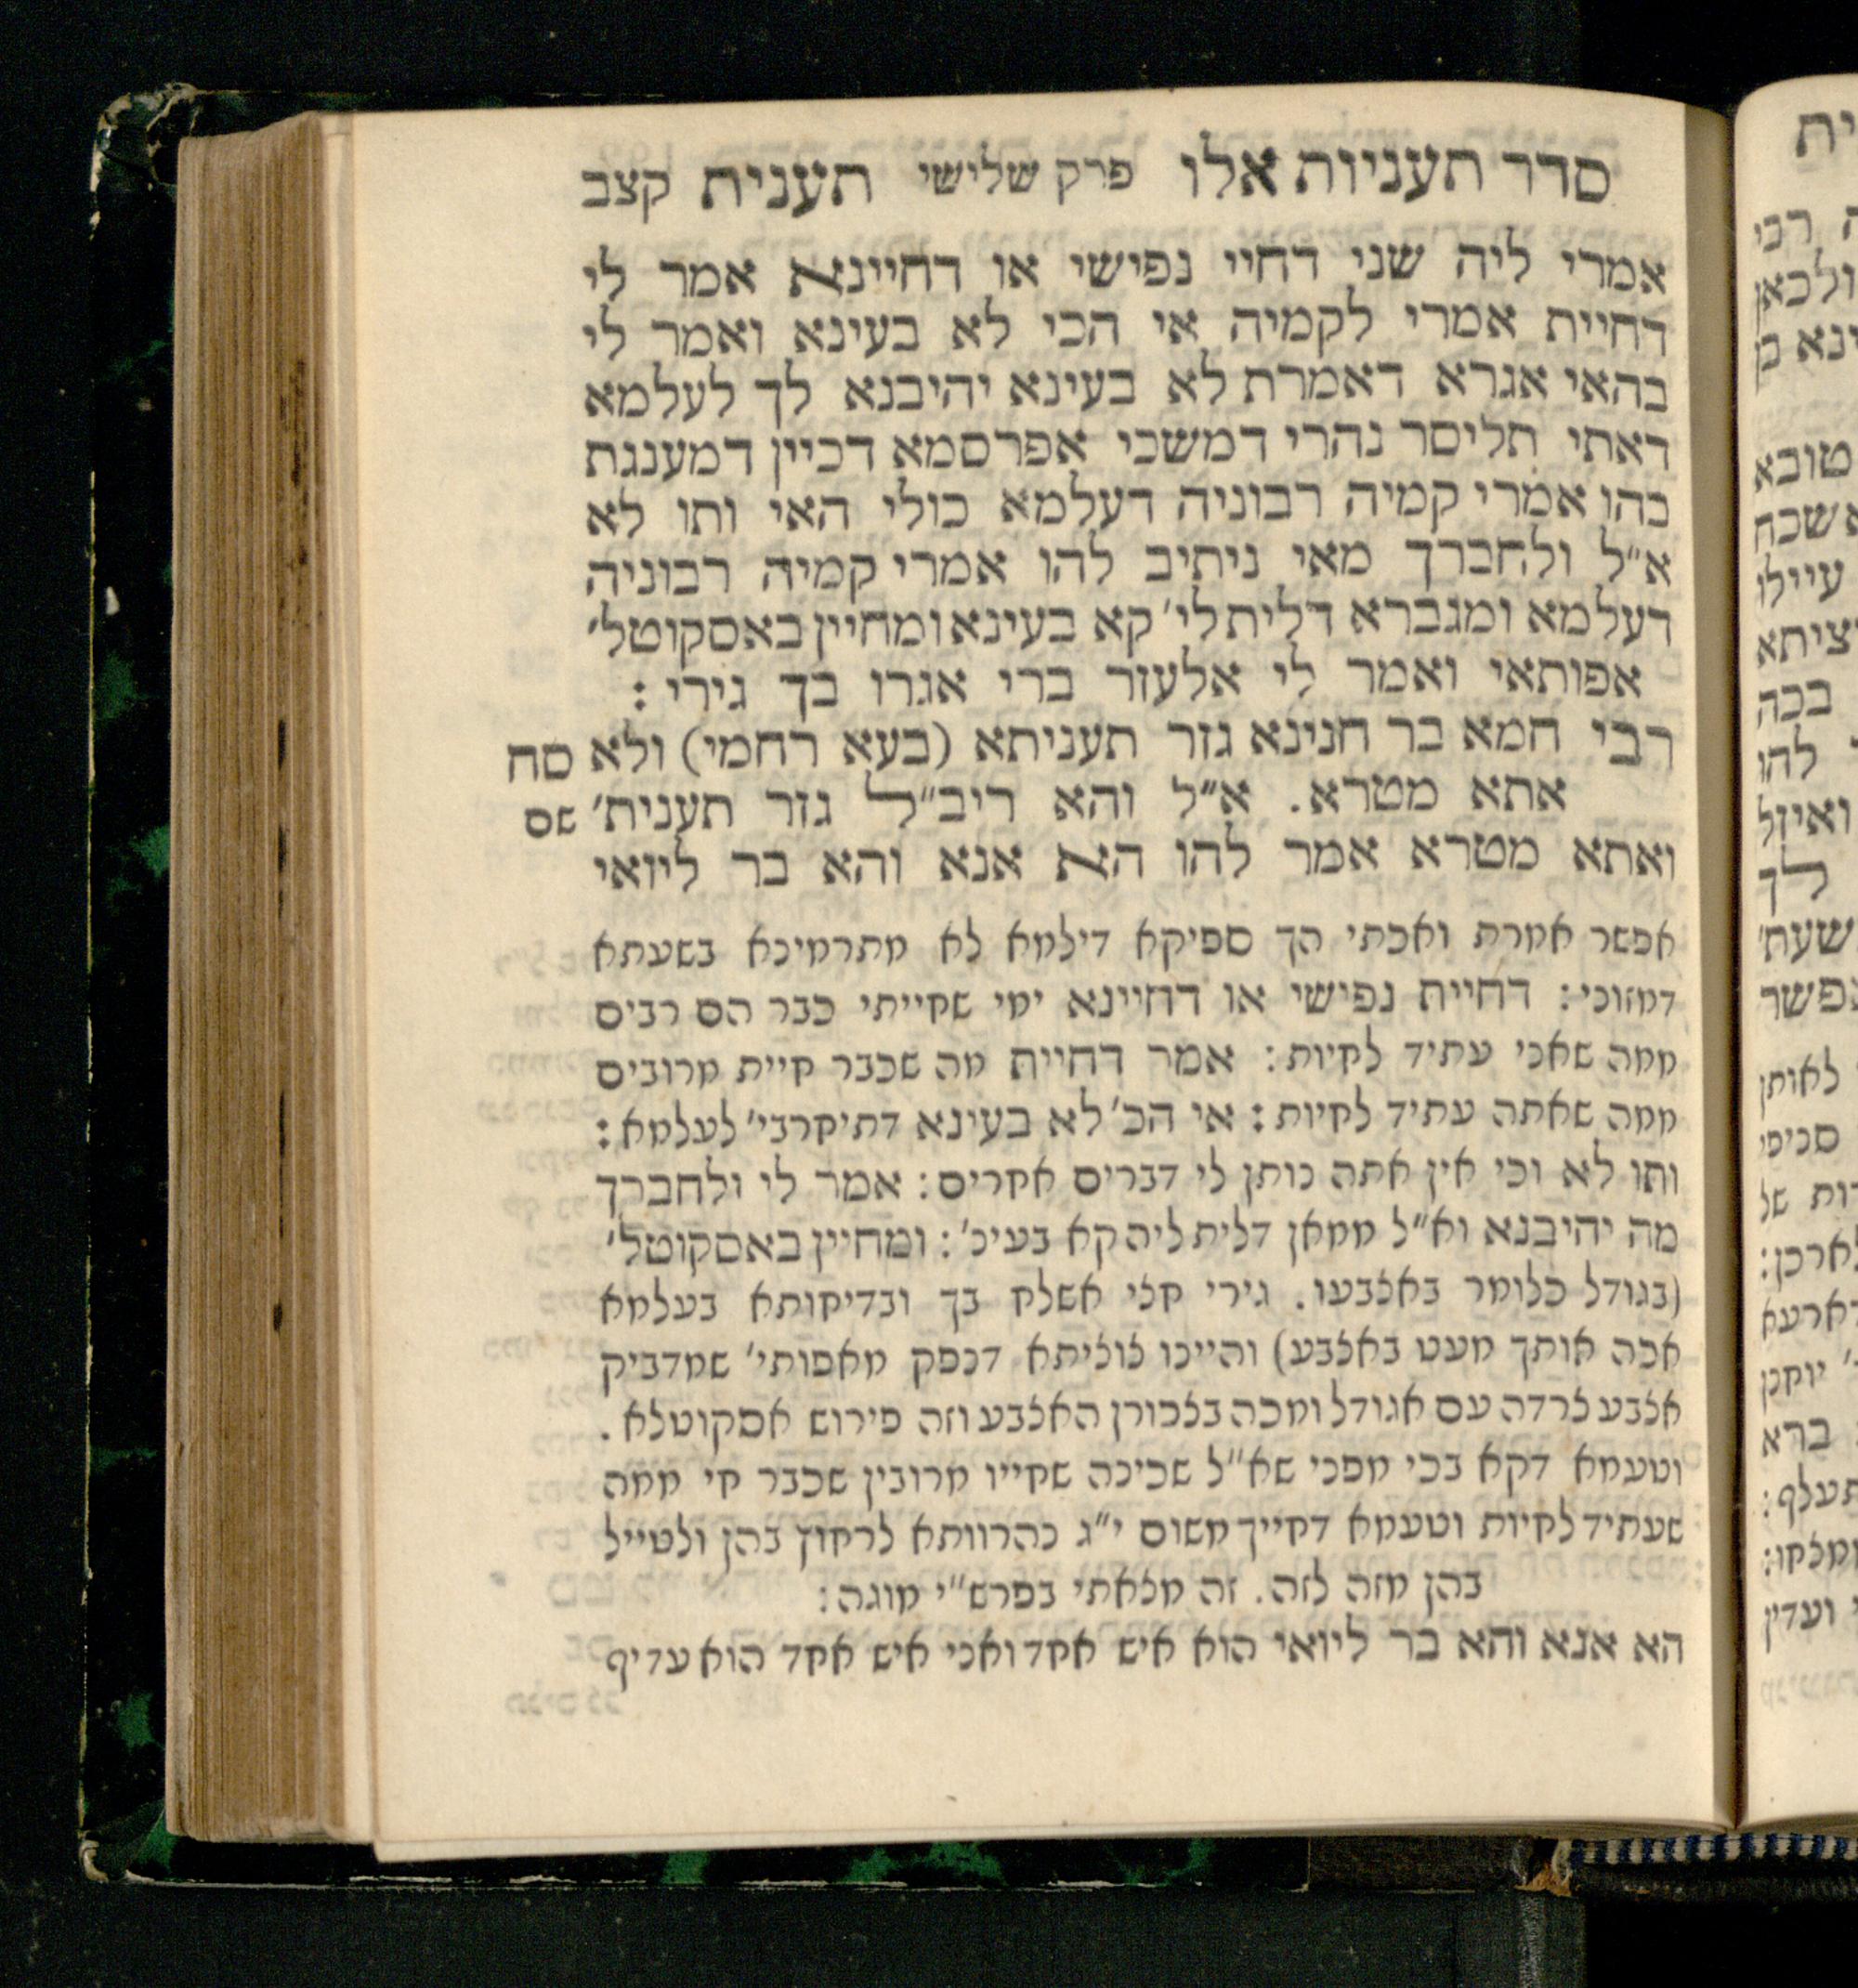 סדר תעניות אלו פרק שלישי תענית קצב
אמרי ליה שני דחיי נפישי או דחיינא אמר לי
דחיית אמרי לקמיה אי הכי לא בעינא ואמר לי
בהאי אגרא דאמרת לא בעינא יהיבנא לך לעלמא
דאתי תליסר נהרי דמשכי אפרסמא דכיין דמענגת
בהו אמרי קמיה רבוניה דעלמא כולי האי ותו לא
א"ל ולחברך מאי ניתיב להו אמרי קמיה רבוניה
דעלמא ומגברא דלית לי' קא בעינא ומחיין באסקוטל'
אפותאי ואמר לי אלעזר ברי אגרו בך גירי :
רבי חמא בר חנינא גזר תעניתא (בעא רחמי) ולא סח
אתא מטרא. א"ל והא ריב"ל גזר תענית' שם
ואתא מטרא אמר להו הא אנא והא בר ליואי
אפשר אמרת ואכתי הך ספיקא דילמא לא מתרמינא בשעתא
דמזוני: דחיית נפישי או דחיינא ימי שחייתי כבר הם רבים
ממה שאני עתיד לחיות: אמר דחיית מה שכבר חיית מרובים
ממה שאתה עתיד לחיות: אי הכ' לא בעינא דתיחרבי' לעלמא:
ותו לא וכי אין אתה נותן לי דברים אחרים: אמר לי ולחברך
מה יהיבנא וא"ל ממאן דלית ליה קא בעינ': ומחיין באסקוטל'
(בגודל כלומר באצבעו. גירי חצי אשלח בך ובדיחותא בעלמא
אכה אותך מעט באצבע) והיינו צוציתא דנפק מאפותי' שמדביק
אצבע צרדה עם אגודל ומכה בצפורן האצבע וזה פירוש אסקוטלא.
וטעמא דקא בכי מפני שא"ל שכינה שחייו מרובין שכבר חי ממה
שעתיד לחיות וטעמא דחייך משום י"ג נהרוותא לרחוץ בהן ולטייל
בהן מזה לזה. זה מצאתי בפרש"י מוגה:
הא אנא והא בר ליואי הוא איש אחד ואני איש אחד הוא עדיף